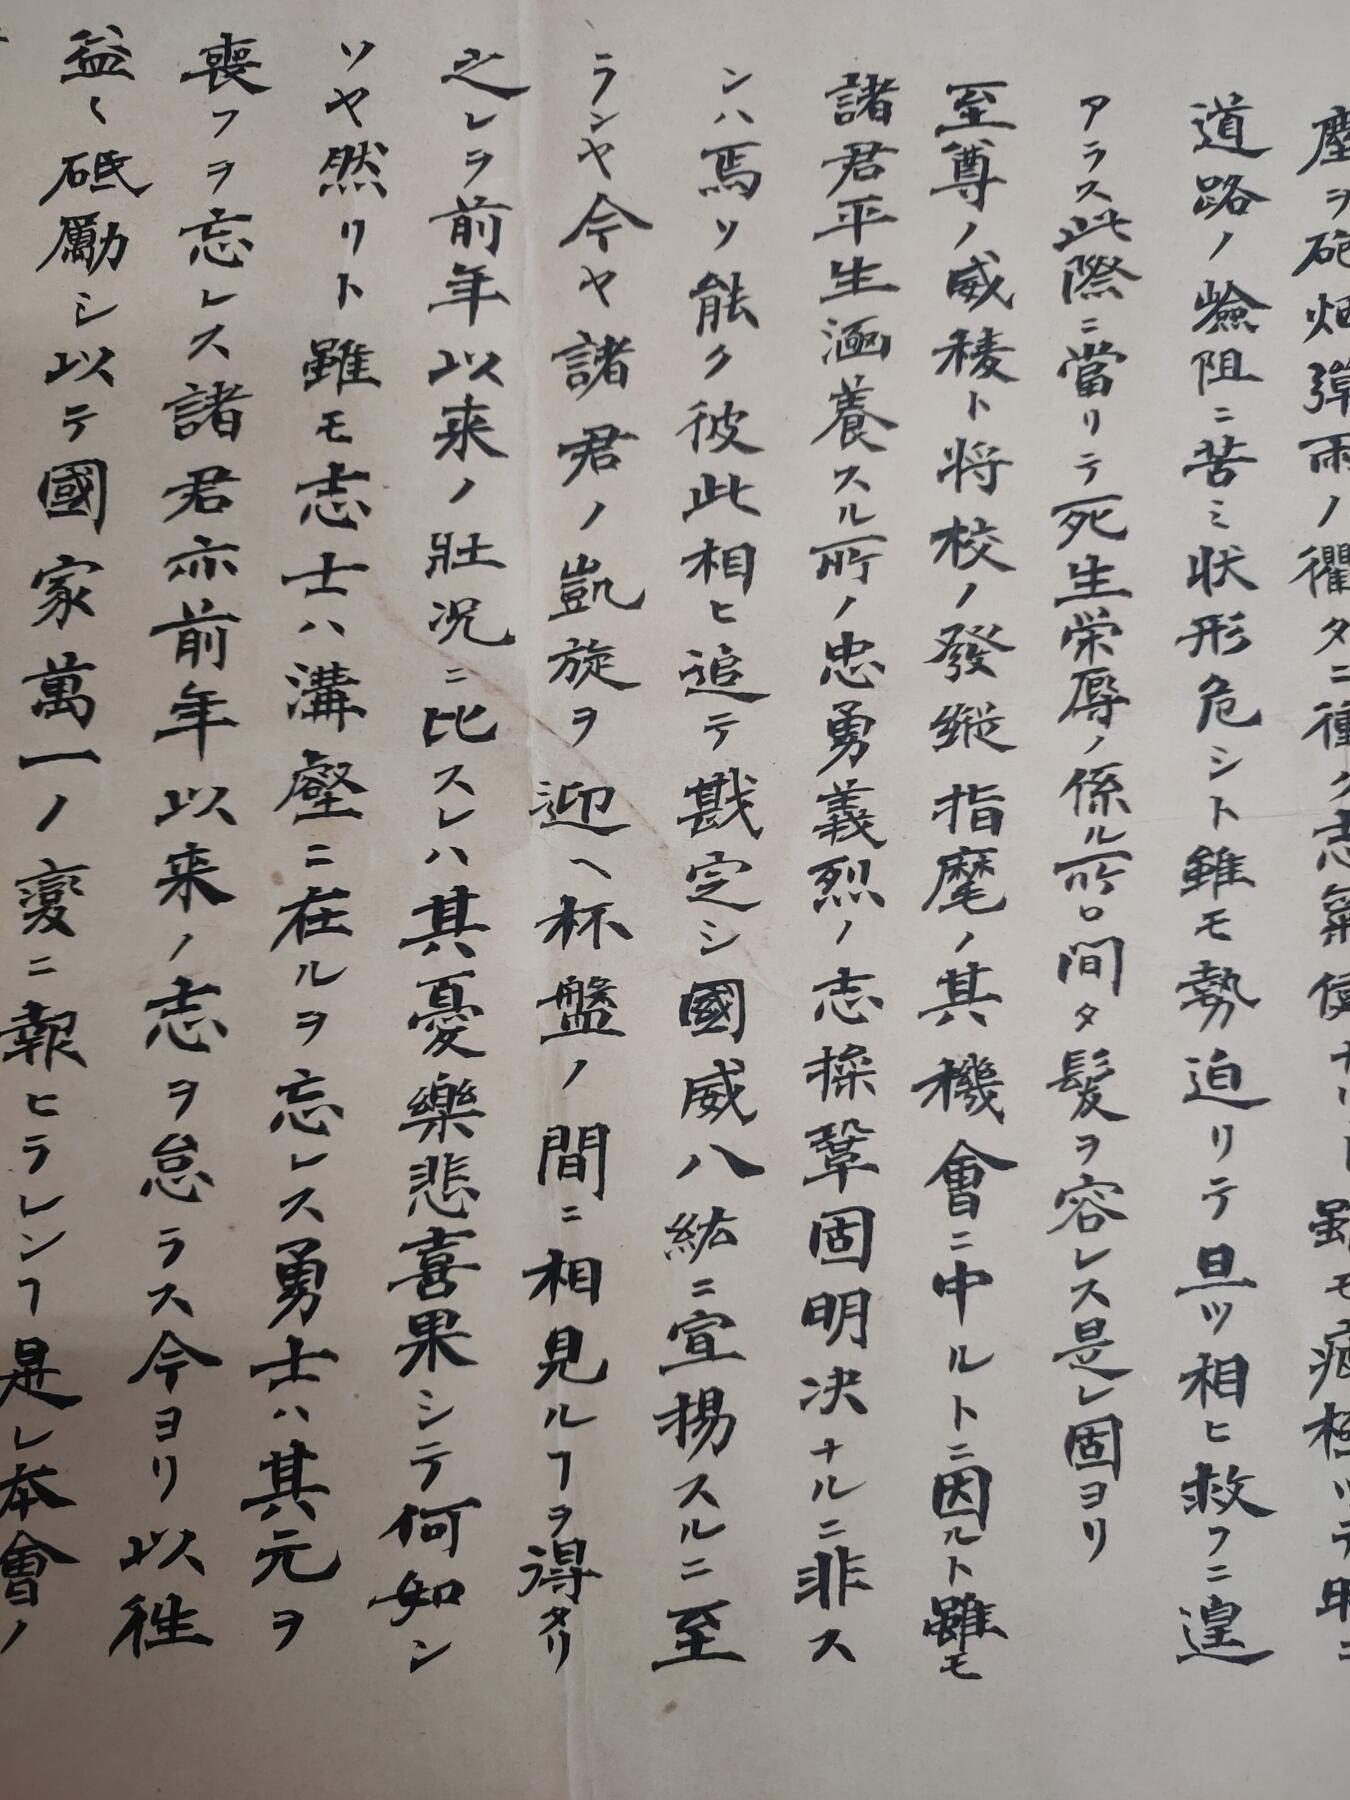 塵ヲ砲烟彈雨ノ衢タニ衝ク志氣使ナリト雖モ疲極ツテ
道路ノ嶮阻ニ苦ミ状形危シト雖モ勢迫リテ旦ツ相ヒ救フニ遑
アラス此際ニ當リテ死生栄辱ノ係ル所ロ間タ髮ヲ容レス是レ固ヨリ
至尊ノ威稜ト将校ノ發縦指麾ノ其機會ニ中ルトニ因ルト雖モ
諸君平生涵養スル所ノ忠勇義烈ノ志操鞏固明决ナルニ非ス
ンハ焉ソ能ク彼此相ヒ追テ戡定シ國威八紘ニ宣揚スルニ至
ランヤ今ヤ諸君ノ凱旋ヲ迎ヘ杯盤ノ間ニ相見ルヿヲ得タリ
之レヲ前年以来ノ壯况ニ比スレハ其憂樂悲喜果シテ何如ン
ソヤ然リト雖モ志士ハ溝壑ニ在ルヲ忘レス勇士ハ其元ヲ
喪フヲ忘レス諸君亦前年以来ノ志ヲ怠ラス今ヨリ以徃
益〻砥勵シ以テ國家萬一ノ変ニ報ヒラレンヿ是レ本會ノ